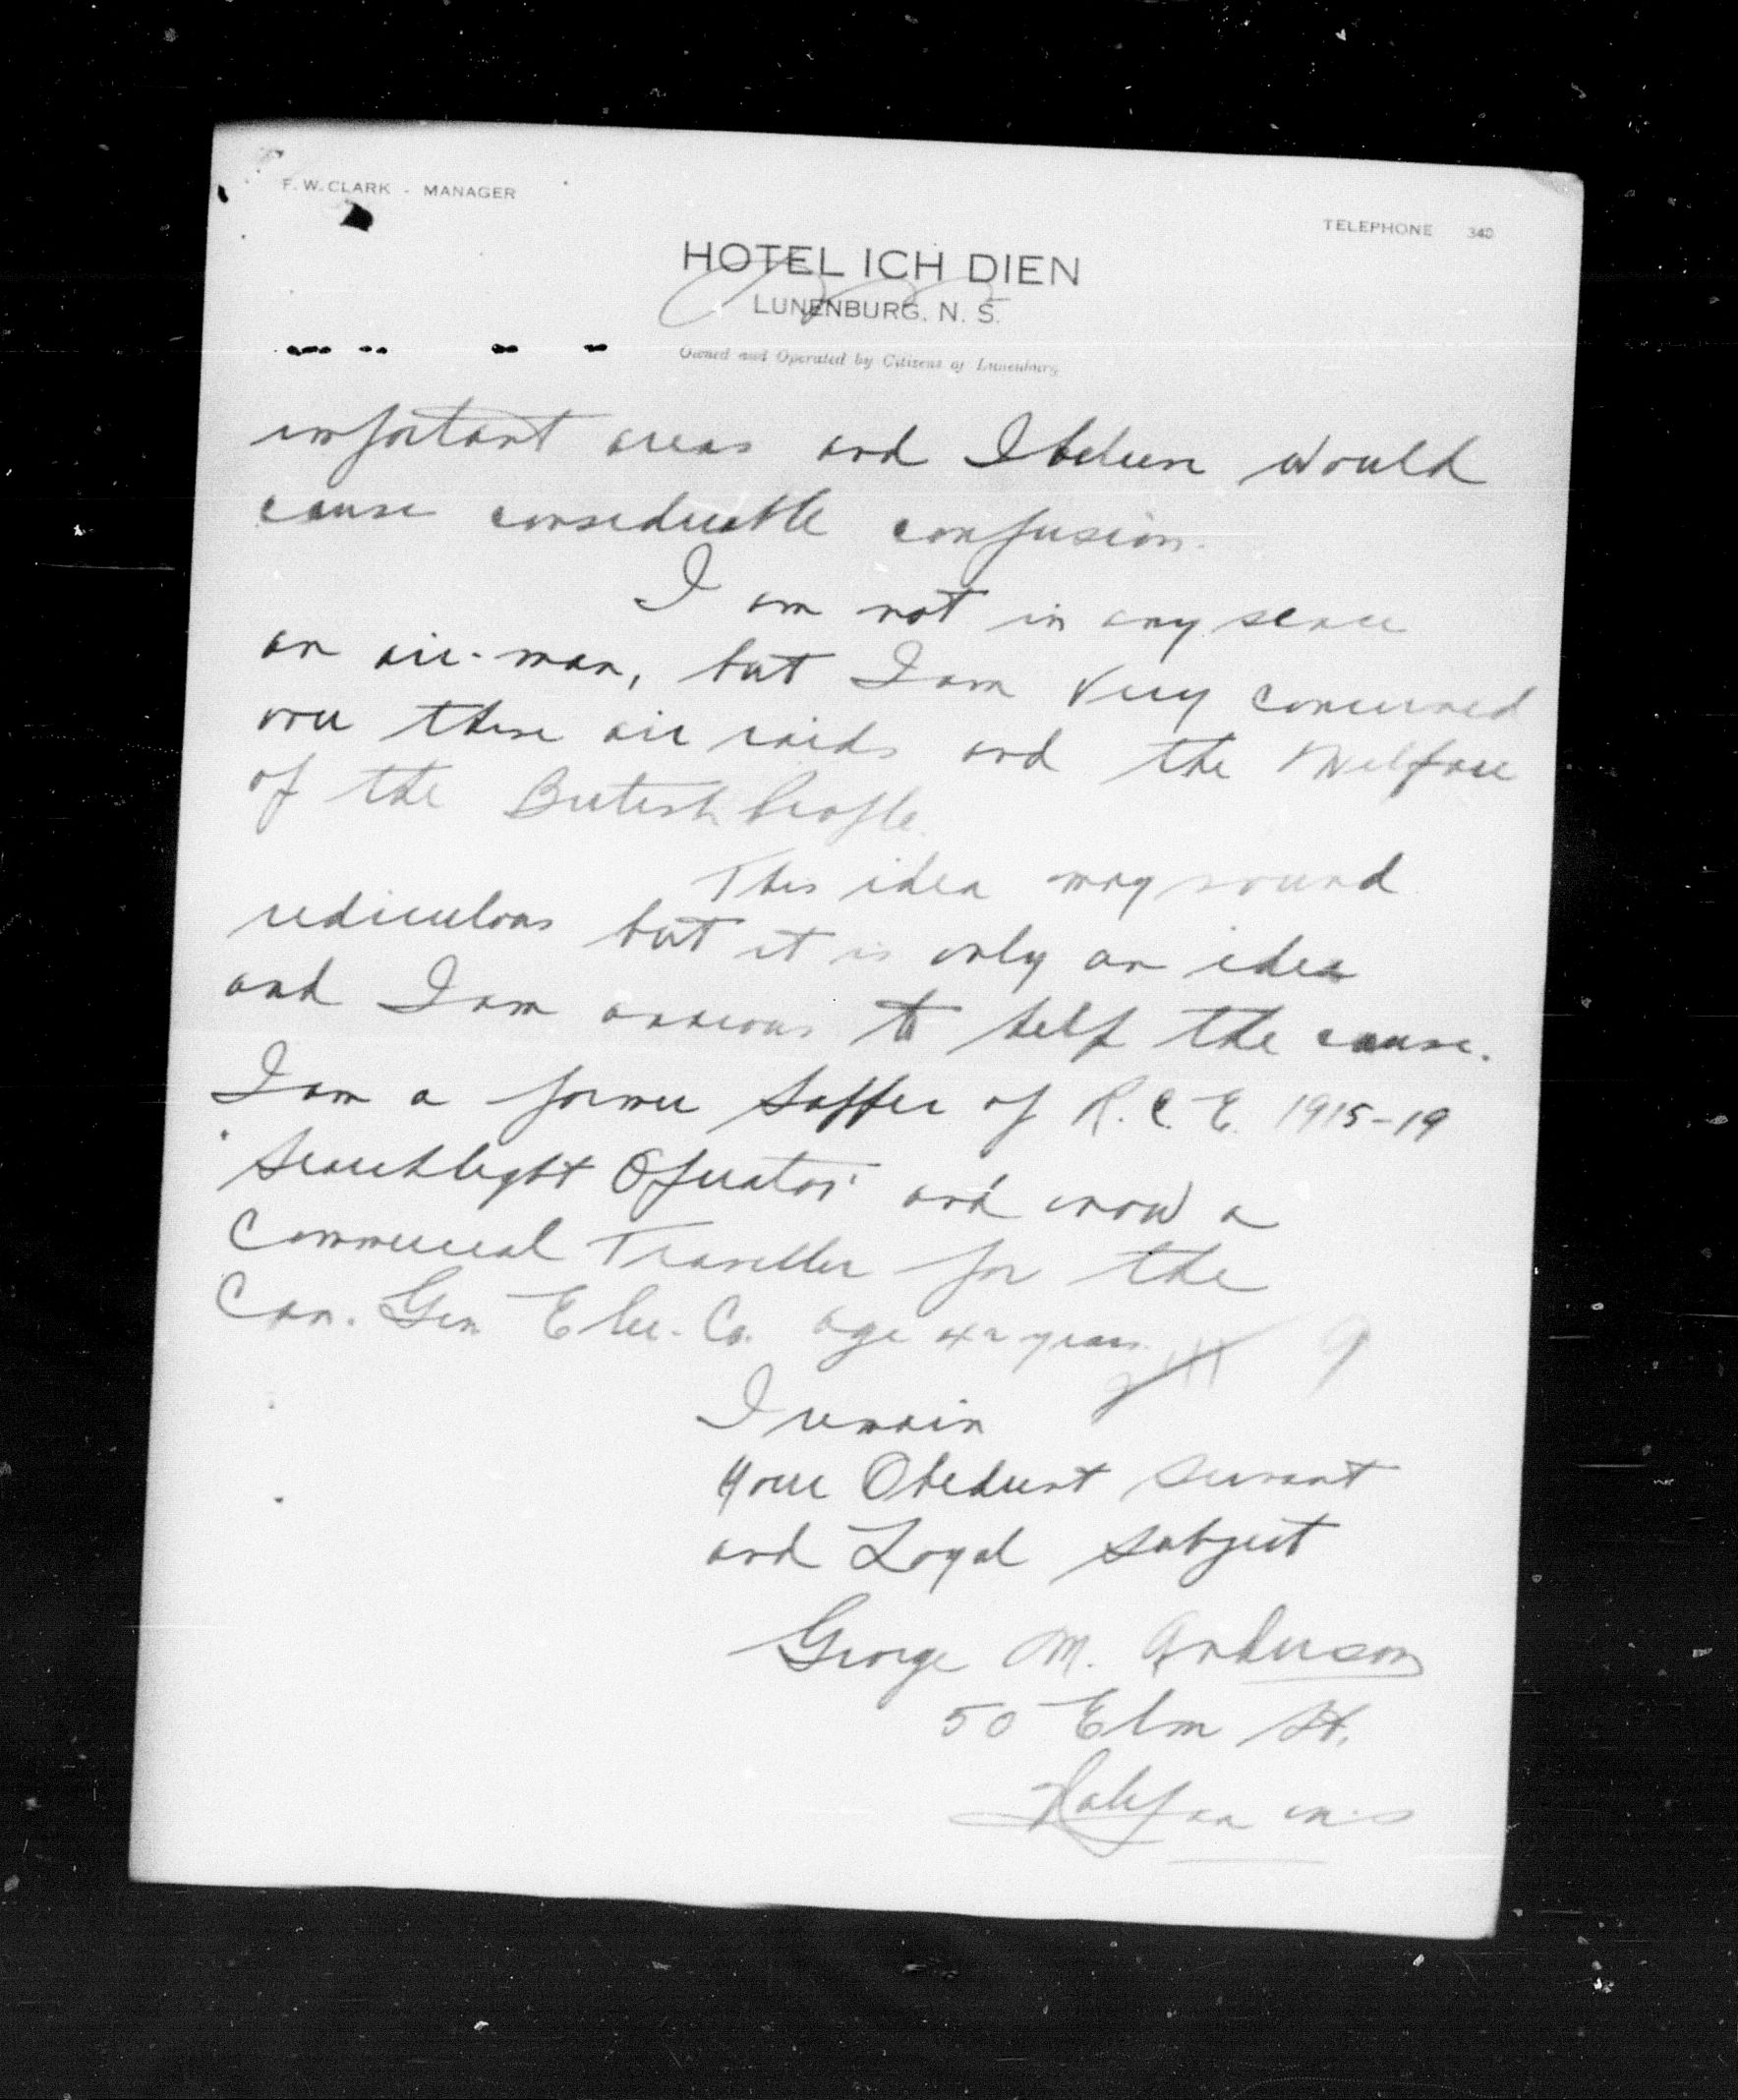 F. W. CLARK - MANAGER
TELEPHONE 340
HOTEL ICH DIEN
LUNENBURG, N. S.
Owned and Operated by Citizens of Lunenburg
important areas and I believe would
cause considerable confusion.
I am not in any sense
an air-man, but I am very concerned
over these air raids and the Welfare
of the British People.
This idea may sound
rediculous but it is only an idea
and I am anxious to help the cause.
I am a former Sapper of R. C. E. 1915-19
"Searchlight Operator" and now a
Commercial Traveller for the
Can. Gen. Elec. Co. age 42 years.
I remain
Your Obedient Servant
and Loyal Subject
George M. Anderson
50 Elm St.
Halifax N.S